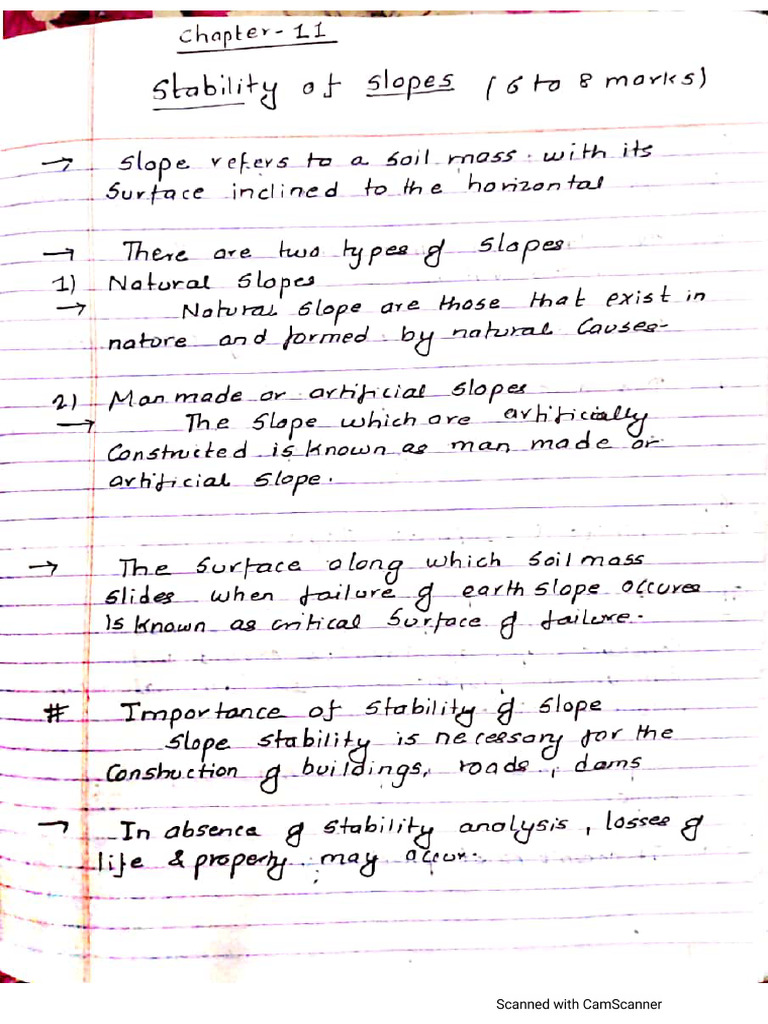 Chapter-11
Stability of slopes (6 to 8 marks)
→ Slope refers to a soil mass with its
surface inclined to the horizontal
→ There are two types of slopes
1) Natural slopes
→ Natural slope are those that exist in
nature and formed by natural causes.
2) Man made or artificial slopes
→ The slope which are artificially
constructed is known as man made or
artificial slope.
→ The surface along which soil mass
slides when failure of earth slope occures
is known as critical surface of failure.
# Importance of stability of slope
slope stability is necessary for the
construction of buildings, roads, dams
→ In absence of stability analysis, losses of
life & property may occur.
Scanned with CamScanner